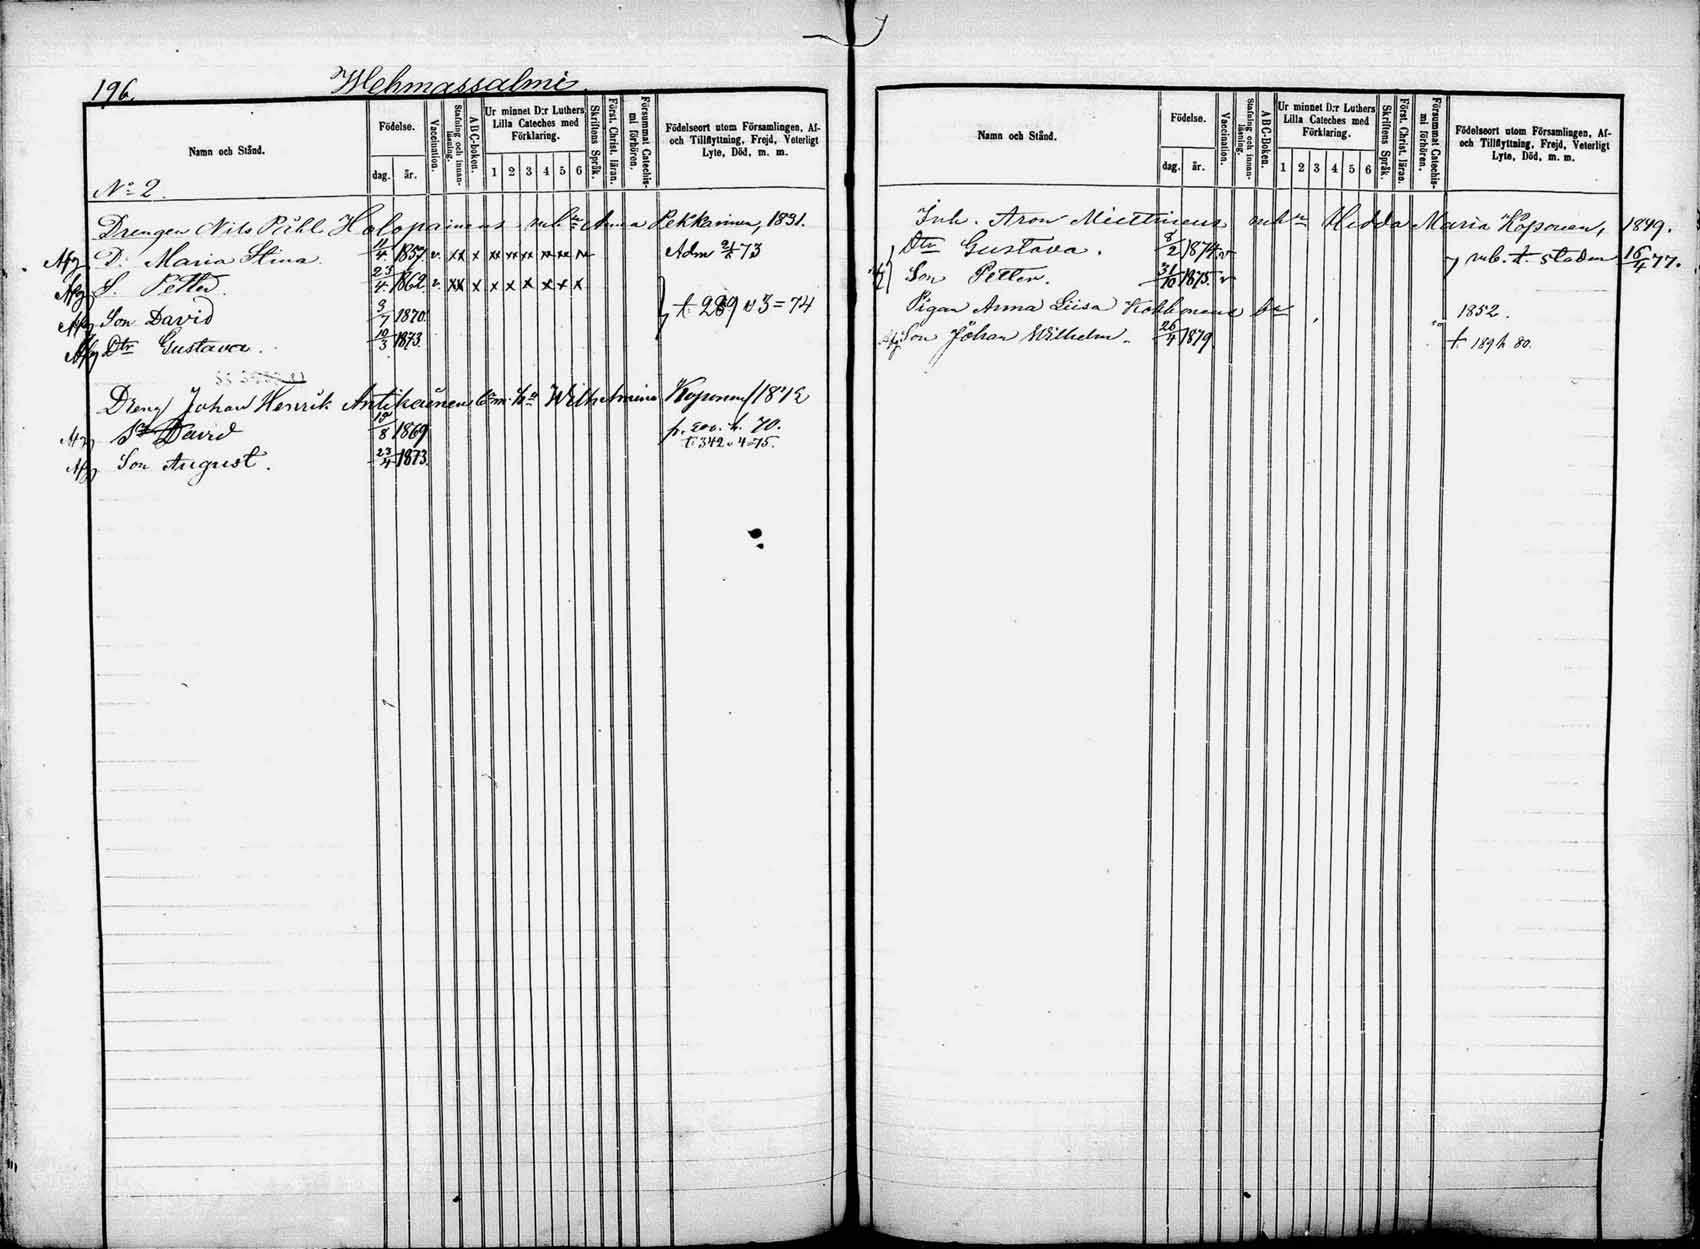 196. Wehmassalmi.
Namn och Stånd.
Födelse.
dag. år.
Vaccination.
Stafning och innan-läsning.
ABC-boken.
Ur minnet D:r Luthers Lilla Cateches med Förklaring.
1 2 3 4 5 6
Skriftens Språk.
Först. Christ. läran.
Försummat Catechis-mi förhören.
Födelseort utom Församlingen, Af-
och Tillflyttning, Frejd, Veterligt
Lyte, Död, m. m.
No 2.
Drengen Nils Påhl Holopainens Anna Pekkarinen, 1831.
Afg D. Maria Stina. 11/4 1857. v. xx x xx xx xx xx xx Adm 73
Afg S. Petter. 23/4 1862. v. xx x x x x x x x
Afg Son David 3/7 1870. t. 289 v 3 = 74
Afg Dtr Gustava. 10/3 1873.
Dreng Johan Henrik Antikainen Wilhelmina Koponen 1842
Afg Sn David 8 1869 p. h. 70.
t. 342 v 4 = 75.
Afg Son August. 23/4 1873.
Namn och Stånd.
Födelse.
dag. år.
Vaccination.
Stafning och innan-läsning.
ABC-boken.
Ur minnet D:r Luthers Lilla Cateches med Förklaring.
1 2 3 4 5 6
Skriftens Språk.
Först. Christ. läran.
Försummat Catechis-mi förhören.
Födelseort utom Församlingen, Af-
och Tillflyttning, Frejd, Veterligt
Lyte, Död, m. m.
Inh. Aron Miettinens Hedda Maria Koponen, 1849.
Dtr Gustava. 8/2 1874. v t. staden 16/4 77.
Son Petter. 31/10 1875. v
Pigan Anna Liisa 1852.
Afg Son Johan Wilhelm. 26/4 1879 t. 189 h 80.